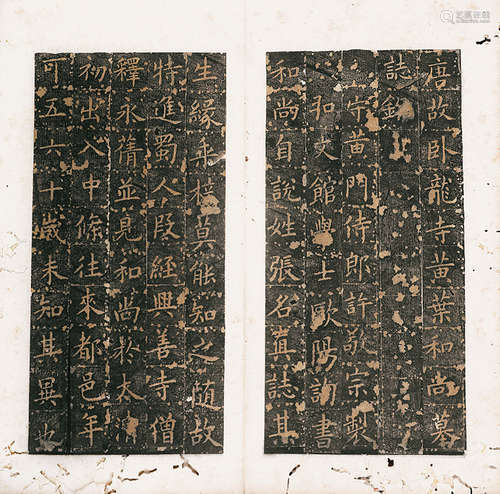 唐故卧龍寺黄葉和尚墓
誌銘
守黄門侍郎許敬宗製
和文館學士歐陽詢書
和尚自說姓張名真誌其
生緣桑梓莫能知之隨故
特進蜀人段經興善寺僧
釋永倩並見和尚於太清
初出入中條往來都邑年
可五六十歲未知其異也